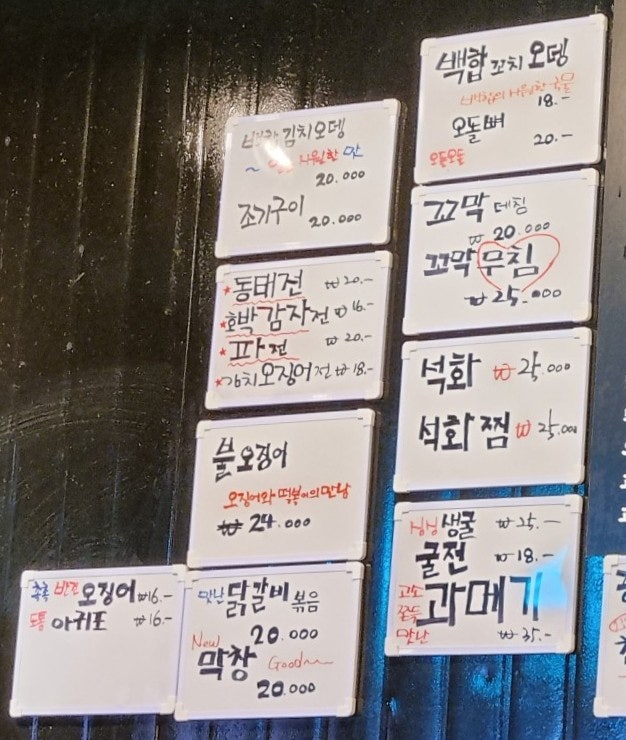 백합 꼬치 오뎅
백합의 시원한 국물
18.-
오돌뼈
20.-
오돌오돌
김치오뎅
~ 시원한 맛
20.000
조기구이
20.000
꼬막 데침
₩ 20.000
꼬막무침
₩ 25.000
*동태전 ₩ 20.-
*호박감자전 ₩ 16.-
*파전 ₩ 20.-
*김치오징어전 ₩ 18.-
석화 ₩ 25.000
석화찜 ₩ 25.000
불오징어
오징어와 떡볶이의 만남
₩ 24.000
싱싱 생굴 ₩ 25.-
굴전 ₩ 18.-
고소
쫀득 과메기
맛난 ₩ 35.-
촉촉 반건 오징어 ₩16.-
도톰 아귀포 ₩16.-
맛난 닭갈비 볶음
20.000
New
막창 Good~
20.000